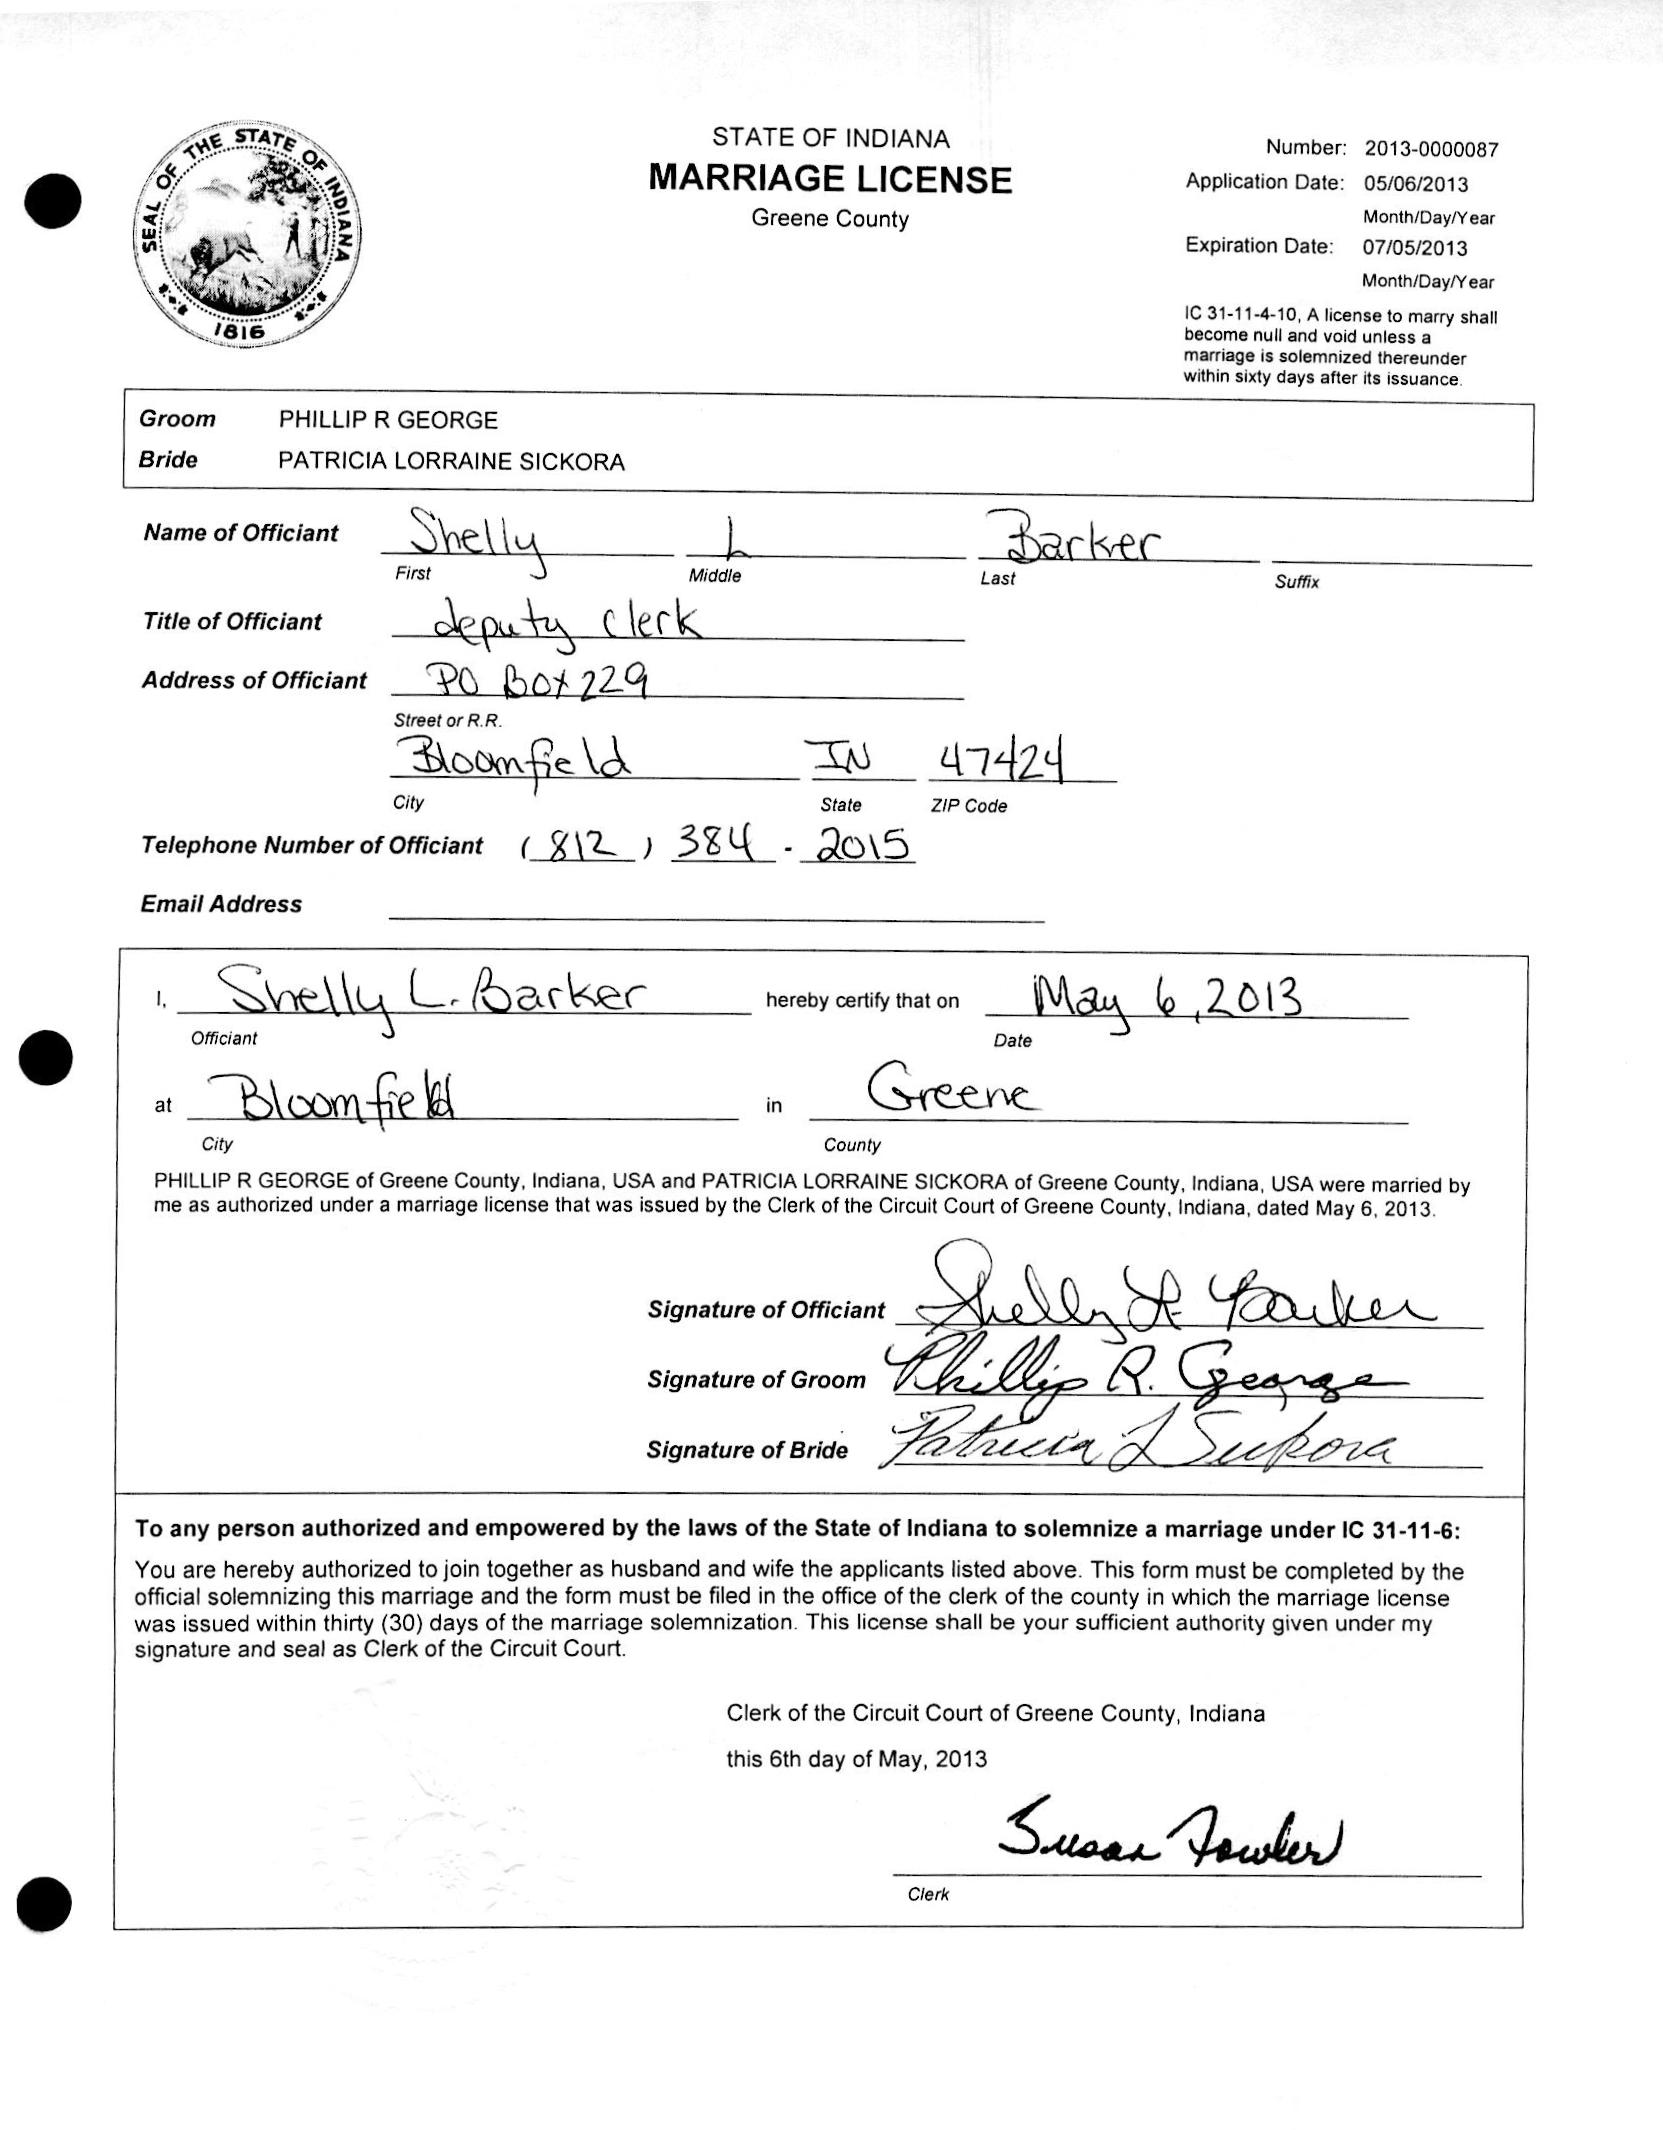 SEAL OF THE STATE OF INDIANA
1816
STATE OF INDIANA
MARRIAGE LICENSE
Greene County
Number: 2013-0000087
Application Date: 05/06/2013
Month/Day/Year
Expiration Date: 07/05/2013
Month/Day/Year
IC 31-11-4-10, A license to marry shall
become null and void unless a
marriage is solemnized thereunder
within sixty days after its issuance.
Groom PHILLIP R GEORGE
Bride PATRICIA LORRAINE SICKORA
Name of Officiant Shelly L Barker
First Middle Last Suffix
Title of Officiant deputy clerk
Address of Officiant PO Box 229
Street or R.R.
Bloomfield IN 47424
City State ZIP Code
Telephone Number of Officiant (812) 384 - 2015
Email Address
I, Shelly L. Barker hereby certify that on May 6, 2013
Officiant Date
at Bloomfield in Greene
City County
PHILLIP R GEORGE of Greene County, Indiana, USA and PATRICIA LORRAINE SICKORA of Greene County, Indiana, USA were married by
me as authorized under a marriage license that was issued by the Clerk of the Circuit Court of Greene County, Indiana, dated May 6, 2013.
Signature of Officiant Shelly L. Barker
Signature of Groom Phillip R. George
Signature of Bride Patricia L Sickora
To any person authorized and empowered by the laws of the State of Indiana to solemnize a marriage under IC 31-11-6:
You are hereby authorized to join together as husband and wife the applicants listed above. This form must be completed by the
official solemnizing this marriage and the form must be filed in the office of the clerk of the county in which the marriage license
was issued within thirty (30) days of the marriage solemnization. This license shall be your sufficient authority given under my
signature and seal as Clerk of the Circuit Court.
Clerk of the Circuit Court of Greene County, Indiana
this 6th day of May, 2013
Susan Fowler
Clerk